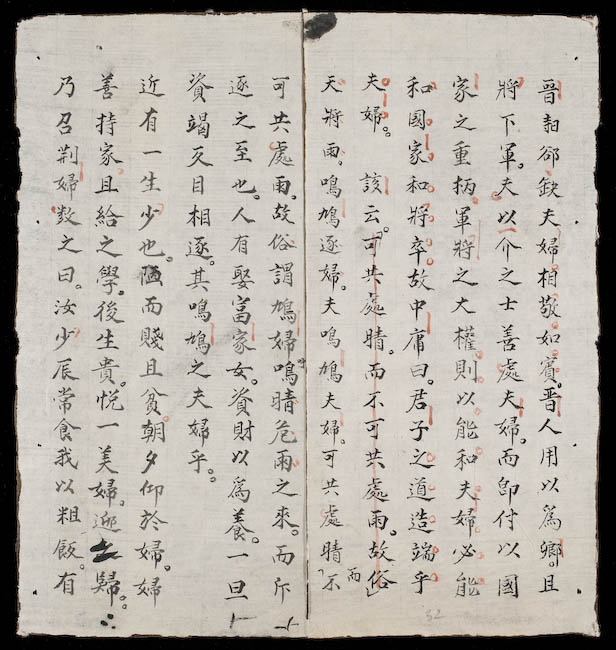 晋郤缺夫婦。相敬如賓。晋人用以為鄉。且
將下軍。夫以一介之士善處夫婦。而卽付以國
家之重柄。軍將之大權。則以能和夫婦。必能
和國家。和將卒。故中庸曰。君子之道造端乎
夫婦。 該云。可共處晴。而不可共處雨。故俗
天將雨。鳴鳩逐婦。夫鳴鳩夫婦。可共處晴而不
可共處雨。故俗謂鳩婦鳴晴危雨之來。而斥
逐之至也。人有娶富家女。資財以為養。一旦
資竭反目相逐。其鳴鳩之夫婦乎。
近有一生少也。陋而賤且貧。朝夕仰於婦。婦
善持家。且給之學。後生貴。悅一美婦。迎歸。
乃召荆婦数之曰。汝少辰常食我以粗飯。有
32